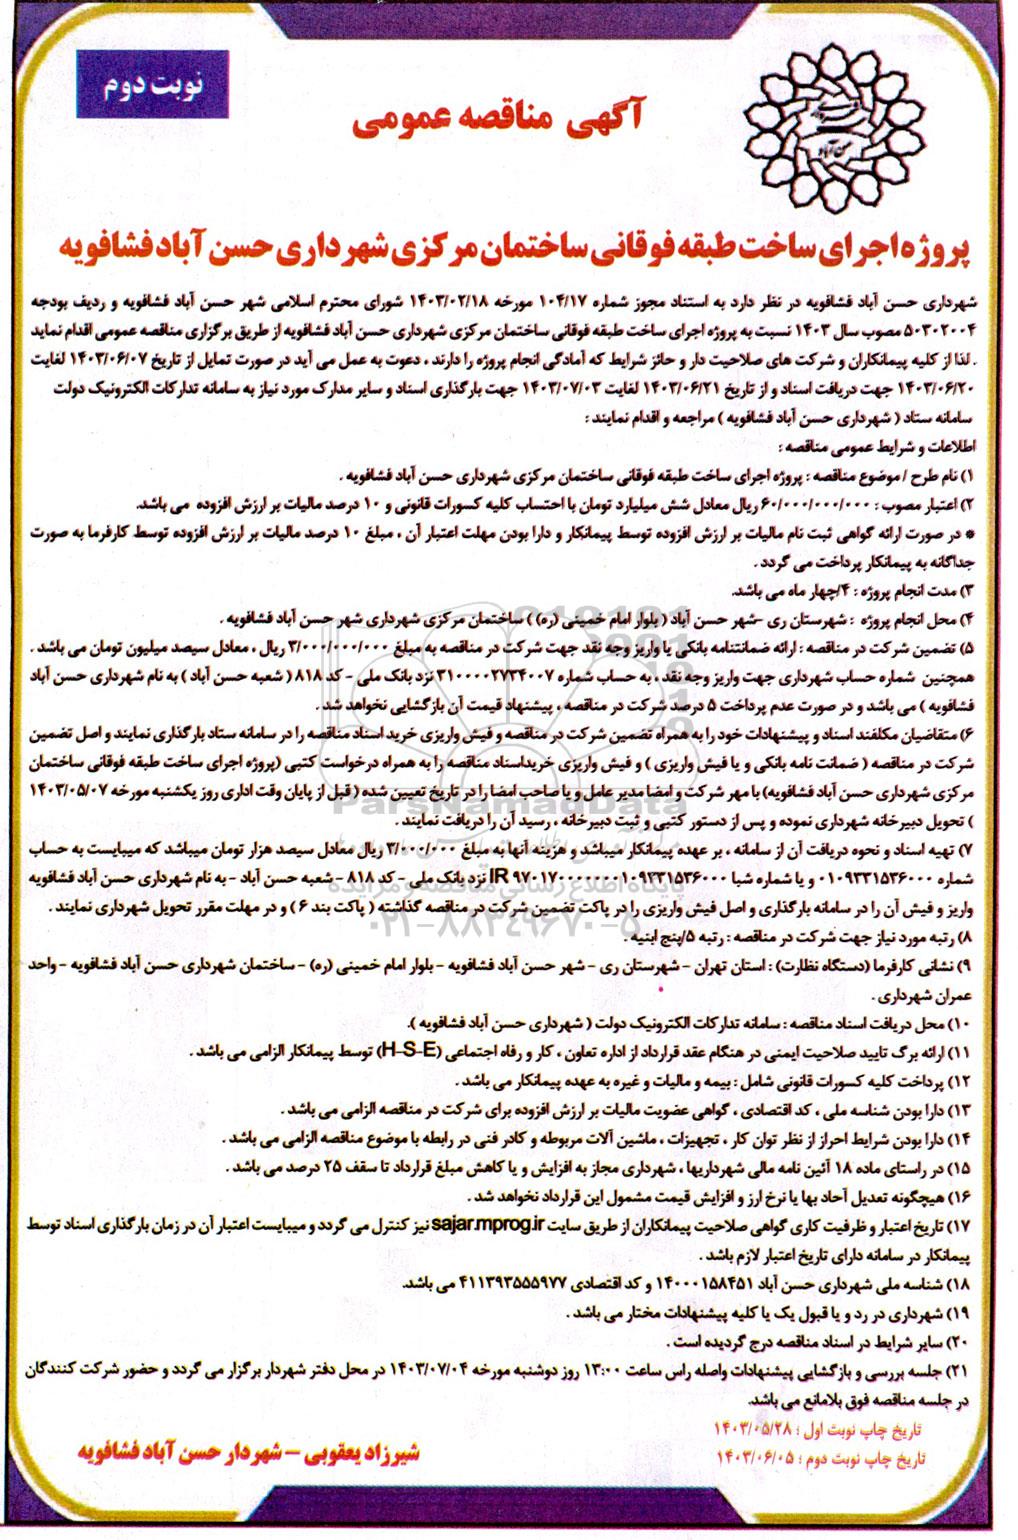 نوبت دوم
آگهی مناقصه عمومی
حسن آباد
پروژه اجرای ساخت طبقه فوقانی ساختمان مرکزی شهرداری حسن آباد فشافویه
شهرداری حسن آباد فشافویه در نظر دارد به استناد مجوز شماره ۱۰۴/۱۷ مورخه ۱۴۰۳/۰۲/۱۸ شورای محترم اسلامی شهر حسن آباد فشافویه و ردیف بودجه
۵۰۳۰۲۰۰۴ مصوب سال ۱۴۰۳ نسبت به پروژه اجرای ساخت طبقه فوقانی ساختمان مرکزی شهرداری حسن آباد فشافویه از طریق برگزاری مناقصه عمومی اقدام نماید
. لذا از کلیه پیمانکاران و شرکت های صلاحیت دار و حائز شرایط که آمادگی انجام پروژه را دارند ، دعوت به عمل می آید در صورت تمایل از تاریخ ۱۴۰۳/۰۶/۰۷ لغایت
۱۴۰۳/۰۶/۲۰ جهت دریافت اسناد و از تاریخ ۱۴۰۳/۰۶/۲۱ لغایت ۱۴۰۳/۰۷/۰۳ جهت بارگذاری اسناد و سایر مدارک مورد نیاز به سامانه تدارکات الکترونیک دولت
سامانه ستاد ( شهرداری حسن آباد فشافویه ) مراجعه و اقدام نمایند :
اطلاعات و شرایط عمومی مناقصه :
۱) نام طرح / موضوع مناقصه : پروژه اجرای ساخت طبقه فوقانی ساختمان مرکزی شهرداری حسن آباد فشافویه .
۲) اعتبار مصوب : ۶۰/۰۰۰/۰۰۰/۰۰۰ ریال معادل شش میلیارد تومان با احتساب کلیه کسورات قانونی و ۱۰ درصد مالیات بر ارزش افزوده می باشد.
* در صورت ارائه گواهی ثبت نام مالیات بر ارزش افزوده توسط پیمانکار و دارا بودن مهلت اعتبار آن ، مبلغ ۱۰ درصد مالیات بر ارزش افزوده توسط کارفرما به صورت
جداگانه به پیمانکار پرداخت می گردد .
۳) مدت انجام پروژه : ۴/چهار ماه می باشد.
۴) محل انجام پروژه : شهرستان ری -شهر حسن آباد ( بلوار امام خمینی (ره) ) ساختمان مرکزی شهرداری شهر حسن آباد فشافویه .
۵) تضمین شرکت در مناقصه : ارائه ضمانتنامه بانکی یا واریز وجه نقد جهت شرکت در مناقصه به مبلغ ۳/۰۰۰/۰۰۰/۰۰۰ ریال ، معادل سیصد میلیون تومان می باشد .
همچنین شماره حساب شهرداری جهت واریز وجه نقد ، به حساب شماره ۳۱۰۰۰۰۲۷۳۴۰۰۷ نزد بانک ملی - کد ۸۱۸ ( شعبه حسن آباد ) به نام شهرداری حسن آباد
فشافویه ) می باشد و در صورت عدم پرداخت ۵ درصد شرکت در مناقصه ، پیشنهاد قیمت آن بازگشایی نخواهد شد .
۶) متقاضیان مکلفند اسناد و پیشنهادات خود را به همراه تضمین شرکت در مناقصه و فیش واریزی خرید اسناد مناقصه را در سامانه ستاد بارگذاری نمایند و اصل تضمین
شرکت در مناقصه ( ضمانت نامه بانکی و یا فیش واریزی ) و فیش واریزی خریداسناد مناقصه را به همراه درخواست کتبی (پروژه اجرای ساخت طبقه فوقانی ساختمان
مرکزی شهرداری حسن آباد فشافویه) با مهر شرکت و امضا مدیر عامل و یا صاحب امضا را در تاریخ تعیین شده ( قبل از پایان وقت اداری روز یکشنبه مورخه ۱۴۰۳/۰۵/۰۷
) تحویل دبیرخانه شهرداری نموده و پس از دستور کتبی و ثبت دبیرخانه ، رسید آن را دریافت نمایند .
۷) تهیه اسناد و نحوه دریافت آن از سامانه ، بر عهده پیمانکار میباشد و هزینه آنها به مبلغ ۳/۰۰۰/۰۰۰ ریال معادل سیصد هزار تومان میباشد که میبایست به حساب
شماره ۰۱۰۹۳۳۱۵۳۶۰۰۰ و یا شماره شبا IR ۹۷۰۱۷۰۰۰۰۰۰۰۰۱۰۹۳۳۱۵۳۶۰۰۰ نزد بانک ملی - کد ۸۱۸ -شعبه حسن آباد - به نام شهرداری حسن آباد فشافویه
واریز و فیش آن را در سامانه بارگذاری و اصل فیش واریزی را در پاکت تضمین شرکت در مناقصه گذاشته ( پاکت بند ۶ ) و در مهلت مقرر تحویل شهرداری نمایند .
۸) رتبه مورد نیاز جهت شرکت در مناقصه : رتبه ۵/پنج ابنیه .
۹) نشانی کارفرما (دستگاه نظارت) : استان تهران - شهرستان ری - شهر حسن آباد فشافویه - بلوار امام خمینی (ره) - ساختمان شهرداری حسن آباد فشافویه - واحد
عمران شهرداری .
۱۰) محل دریافت اسناد مناقصه : سامانه تدارکات الکترونیک دولت ( شهرداری حسن آباد فشافویه ).
۱۱) ارائه برگ تایید صلاحیت ایمنی در هنگام عقد قرارداد از اداره تعاون ، کار و رفاه اجتماعی (H-S-E) توسط پیمانکار الزامی می باشد .
۱۲) پرداخت کلیه کسورات قانونی شامل : بیمه و مالیات و غیره به عهده پیمانکار می باشد .
۱۳) دارا بودن شناسه ملی ، کد اقتصادی ، گواهی عضویت مالیات بر ارزش افزوده برای شرکت در مناقصه الزامی می باشد .
۱۴) دارا بودن شرایط احراز از نظر توان کار ، تجهیزات ، ماشین آلات مربوطه و کادر فنی در رابطه با موضوع مناقصه الزامی می باشد .
۱۵) در راستای ماده ۱۸ آئین نامه مالی شهرداریها ، شهرداری مجاز به افزایش و یا کاهش مبلغ قرارداد تا سقف ۲۵ درصد می باشد .
۱۶) هیچگونه تعدیل آحاد بها یا نرخ ارز و افزایش قیمت مشمول این قرارداد نخواهد شد .
۱۷) تاریخ اعتبار و ظرفیت کاری گواهی صلاحیت پیمانکاران از طریق سایت sajar.mprog.ir نیز کنترل می گردد و میبایست اعتبار آن در زمان بارگذاری اسناد توسط
پیمانکار در سامانه دارای تاریخ اعتبار لازم باشد .
۱۸) شناسه ملی شهرداری حسن آباد ۱۴۰۰۰۱۵۸۴۵۱ و کد اقتصادی ۴۱۱۳۹۳۵۵۵۹۷۷ می باشد.
۱۹) شهرداری در رد و یا قبول یک یا کلیه پیشنهادات مختار می باشد .
۲۰) سایر شرایط در اسناد مناقصه درج گردیده است .
۲۱) جلسه بررسی و بازگشایی پیشنهادات واصله راس ساعت ۱۳:۰۰ روز دوشنبه مورخه ۱۴۰۳/۰۷/۰۴ در محل دفتر شهردار برگزار می گردد و حضور شرکت کنندگان
در جلسه مناقصه فوق بلامانع می باشد.
تاریخ چاپ نوبت اول : ۱۴۰۳/۰۵/۲۸
تاریخ چاپ نوبت دوم : ۱۴۰۳/۰۶/۰۵
شیرزاد یعقوبی - شهردار حسن آباد فشافویه
ParsNamadData
پایگاه اطلاع رسانی مناقصه و مزایده
۰۲۱-۸۸۳۴۹۶۷۰-۵